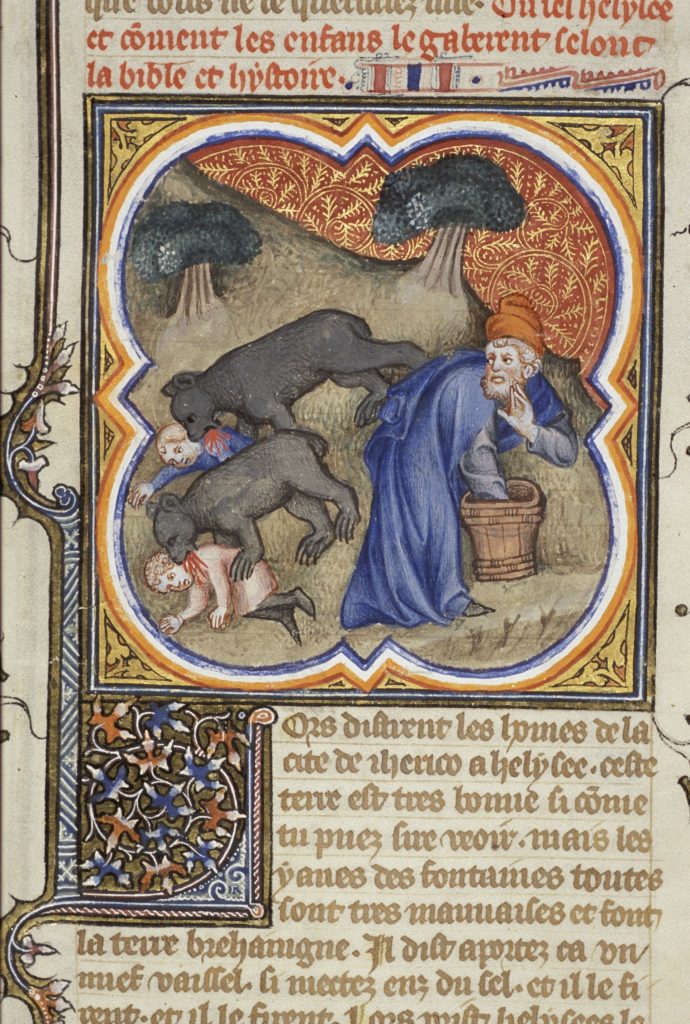 que
Du sel helysee
et cōment les enfans le gaberent selonc
la bible et hystoire.
Ors distrent les homes de la
cite de iherico a helysee. ceste
terre est tres bonne si cōme
tu puez sire veoir. mais les
yaues des fontaines toutes
sont tres mauuaises et font
la terre brehaingne. Il dist aportez ca vn
nuef vaissel. si metez enz du sel. et il le fi
rent. et il le firent. Lors mist helysees le